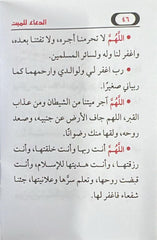 ٤٦
الدعاء للميت
• اللَّهُمَّ لا تحرمنا أجره، ولا تفتنا بعده،
واغفر لنا وله ولسائر المسلمين.
• رب اغفر لي ولوالدي وارحمهما كما
ربياني صغيرًا.
• اللَّهُمَّ أجر ميتنا من الشيطان ومن عذاب
القبر، اللهم جاف الأرض عن جنبيه، وصعد
روحه، ولقها منك رضوانًا.
• اللَّهُمَّ أنت ربها وأنت خلقتها، وأنت
رزقتها، وأنت هديتها للإسلام، وأنت
قبضت روحها، وتعلم سرَّها وعلانيتها، جئنا
شفعاء فاغفر لها.